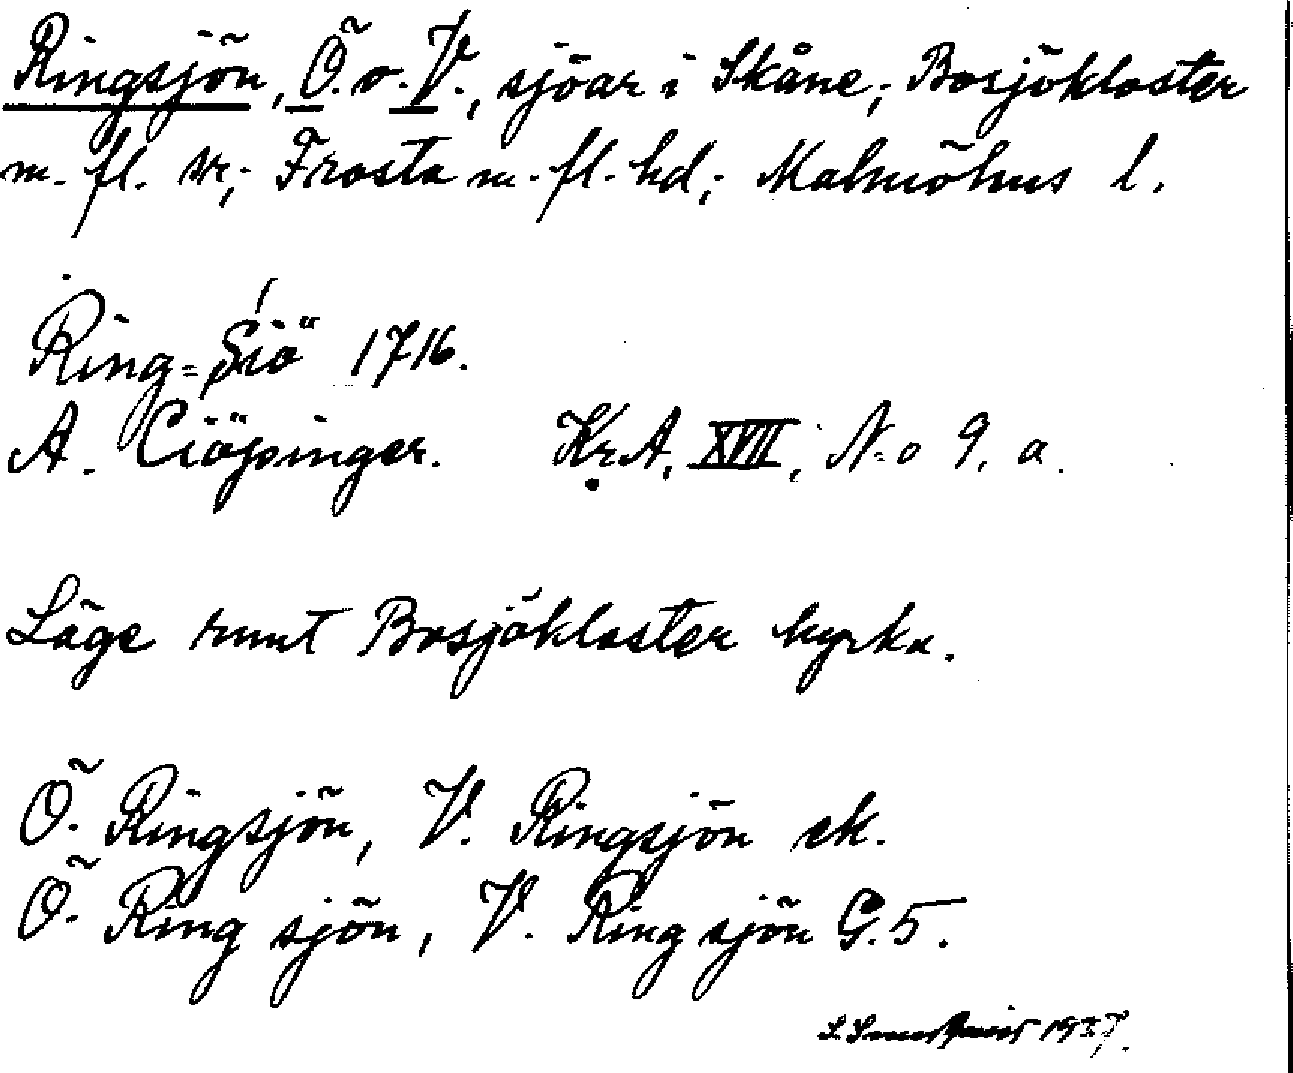 Ringsjön, Ö. o. V., sjöar i Skåne; Bosjökloster
m. fl. sr; Frosta m. fl. hd; Malmöhus l.
Ring=Siö 1716.
A. Ciöpinger. Kr.A. XVII, No 9. a.
Läge runt Bosjökloster kyrka.
Ö. Ringsjön, V. Ringsjön ek.
Ö. Ring sjön, V. Ring sjön G.5.
1937.